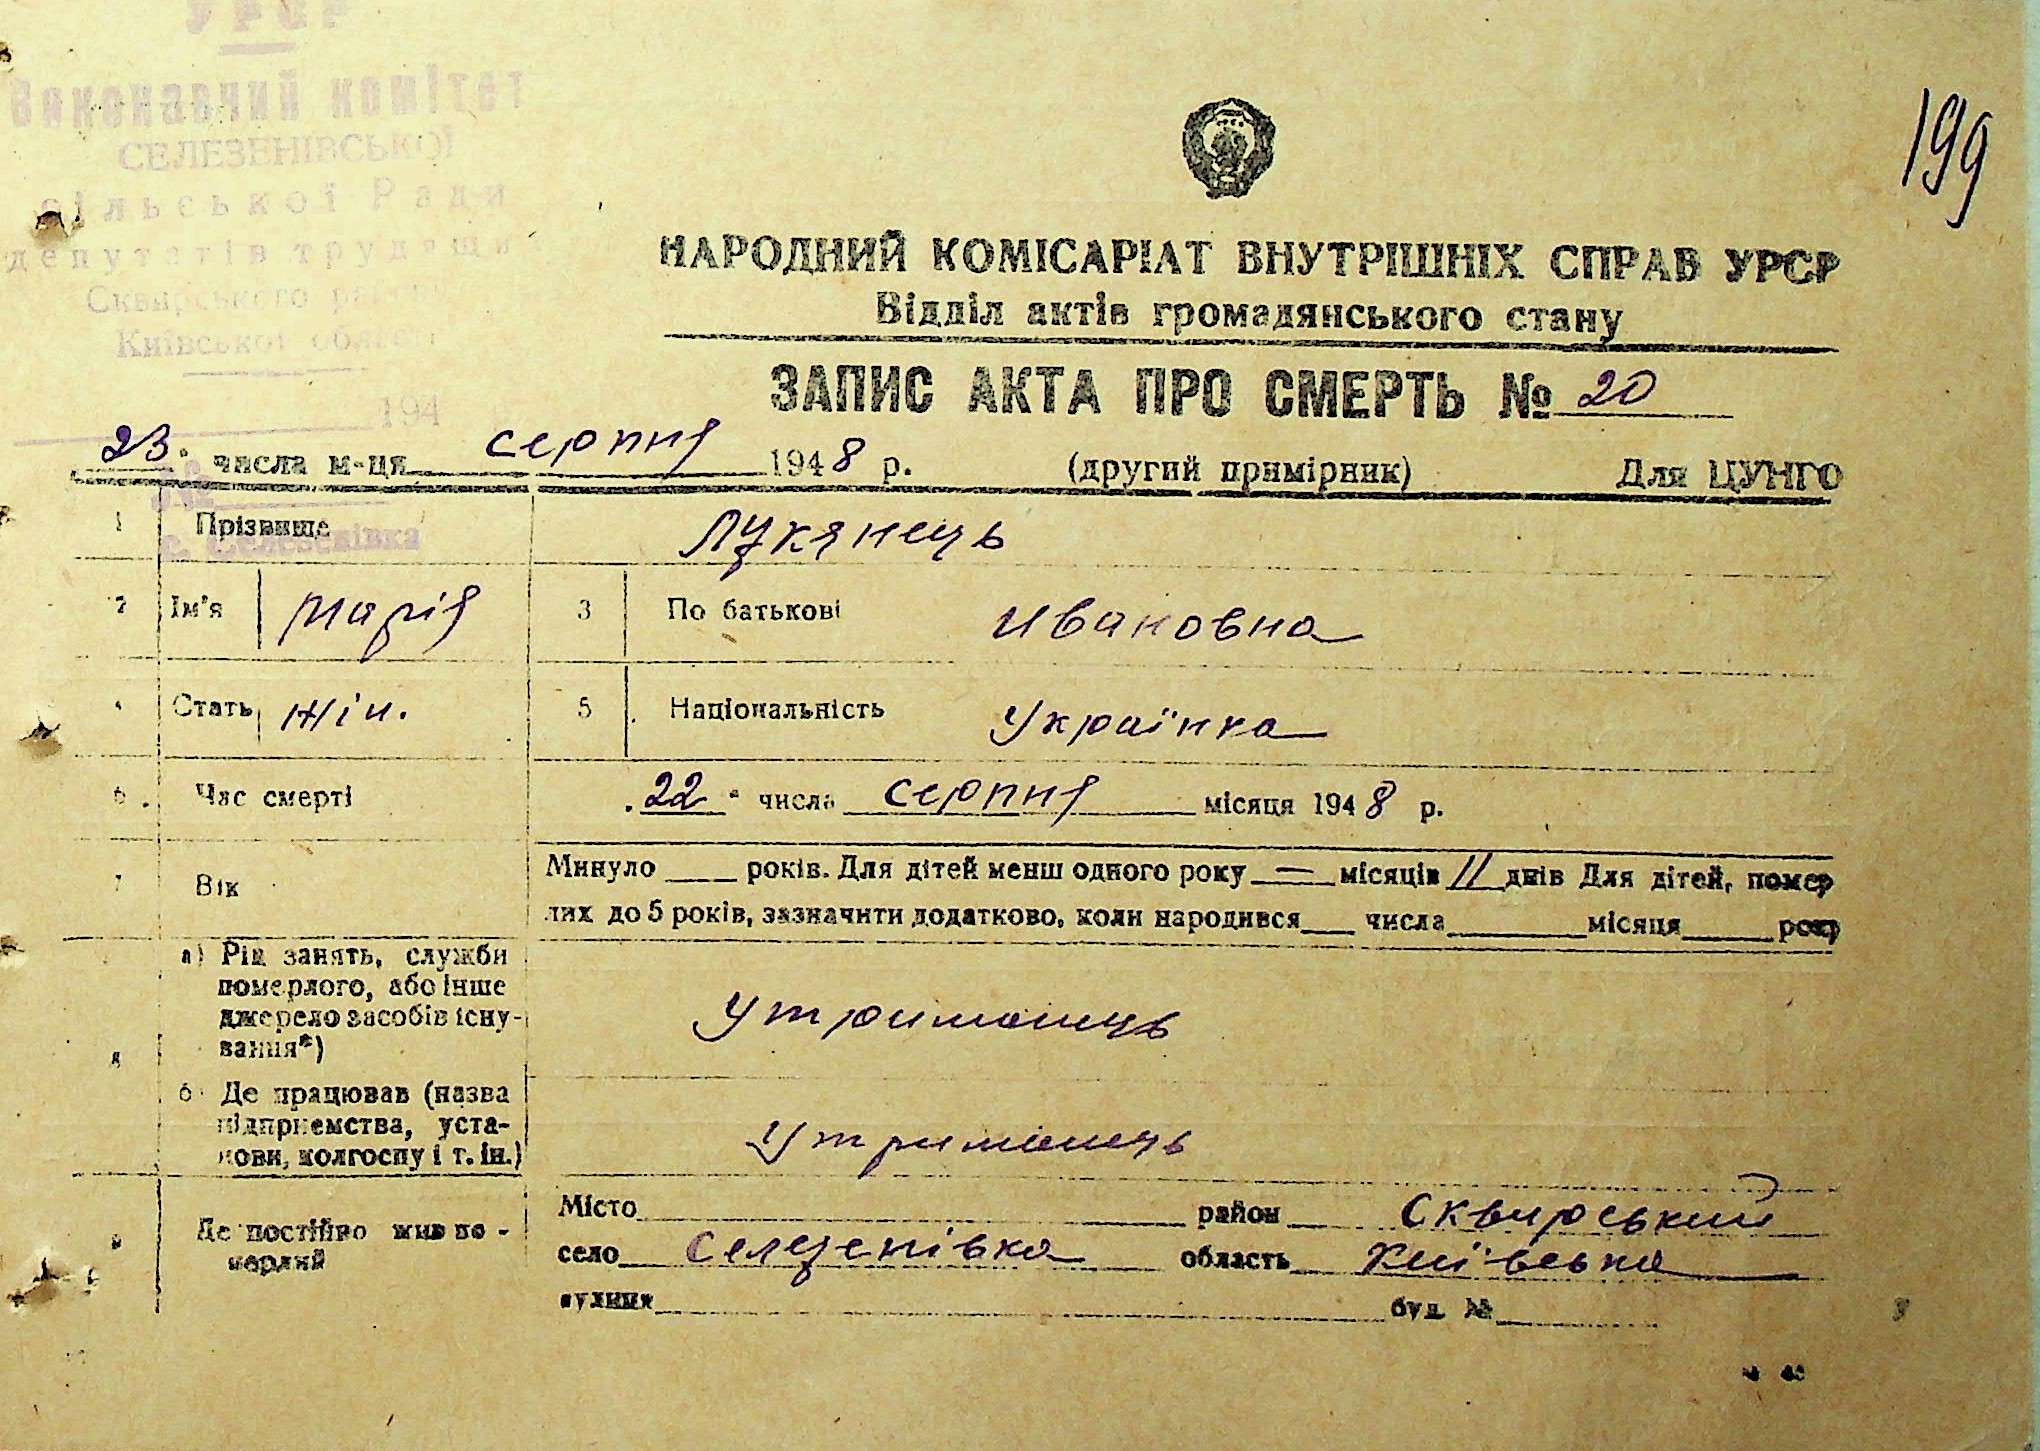 УРСР
Виконавчий комітет
СЕЛЕЗЕНІВСЬКОЇ
сільської Ради
депутатів трудящи
Сквирського
Київської області
194
с. Селезенівка
199
НАРОДНИЙ КОМІСАРІАТ ВНУТРІШНІХ СПРАВ УРСР
Відділ актів громадянського стану
ЗАПИС АКТА ПРО СМЕРТЬ № 20
23 " числа м-ця серпня 1948 р. (другий примірник) Для ЦУНГО
1 Прізвище Лукянець
2 Ім'я Марія 3 По батькові Ивановна
4 Стать жін. 5 Національність Українка
6 Час смерті "22" числа серпня місяця 1948 р.
7 Вік Минуло ___ років. Для дітей менш одного року — місяців 11 днів Для дітей, помер
лих до 5 років, зазначити додатково, коли народився ___ числа ___ місяця ___ року
8 а) Рід занять, служби
померлого, або інше
джерело засобів існу-
вання*) Утриманець
б Де працював (назва
підприємства, уста-
нови, колгоспу і т. ін.) Утриманець
9 Де постійно жив по-
мерлий
Місто ___ район Сквирський
село Селезенівка область Київська
вулиця ___ буд. № ___